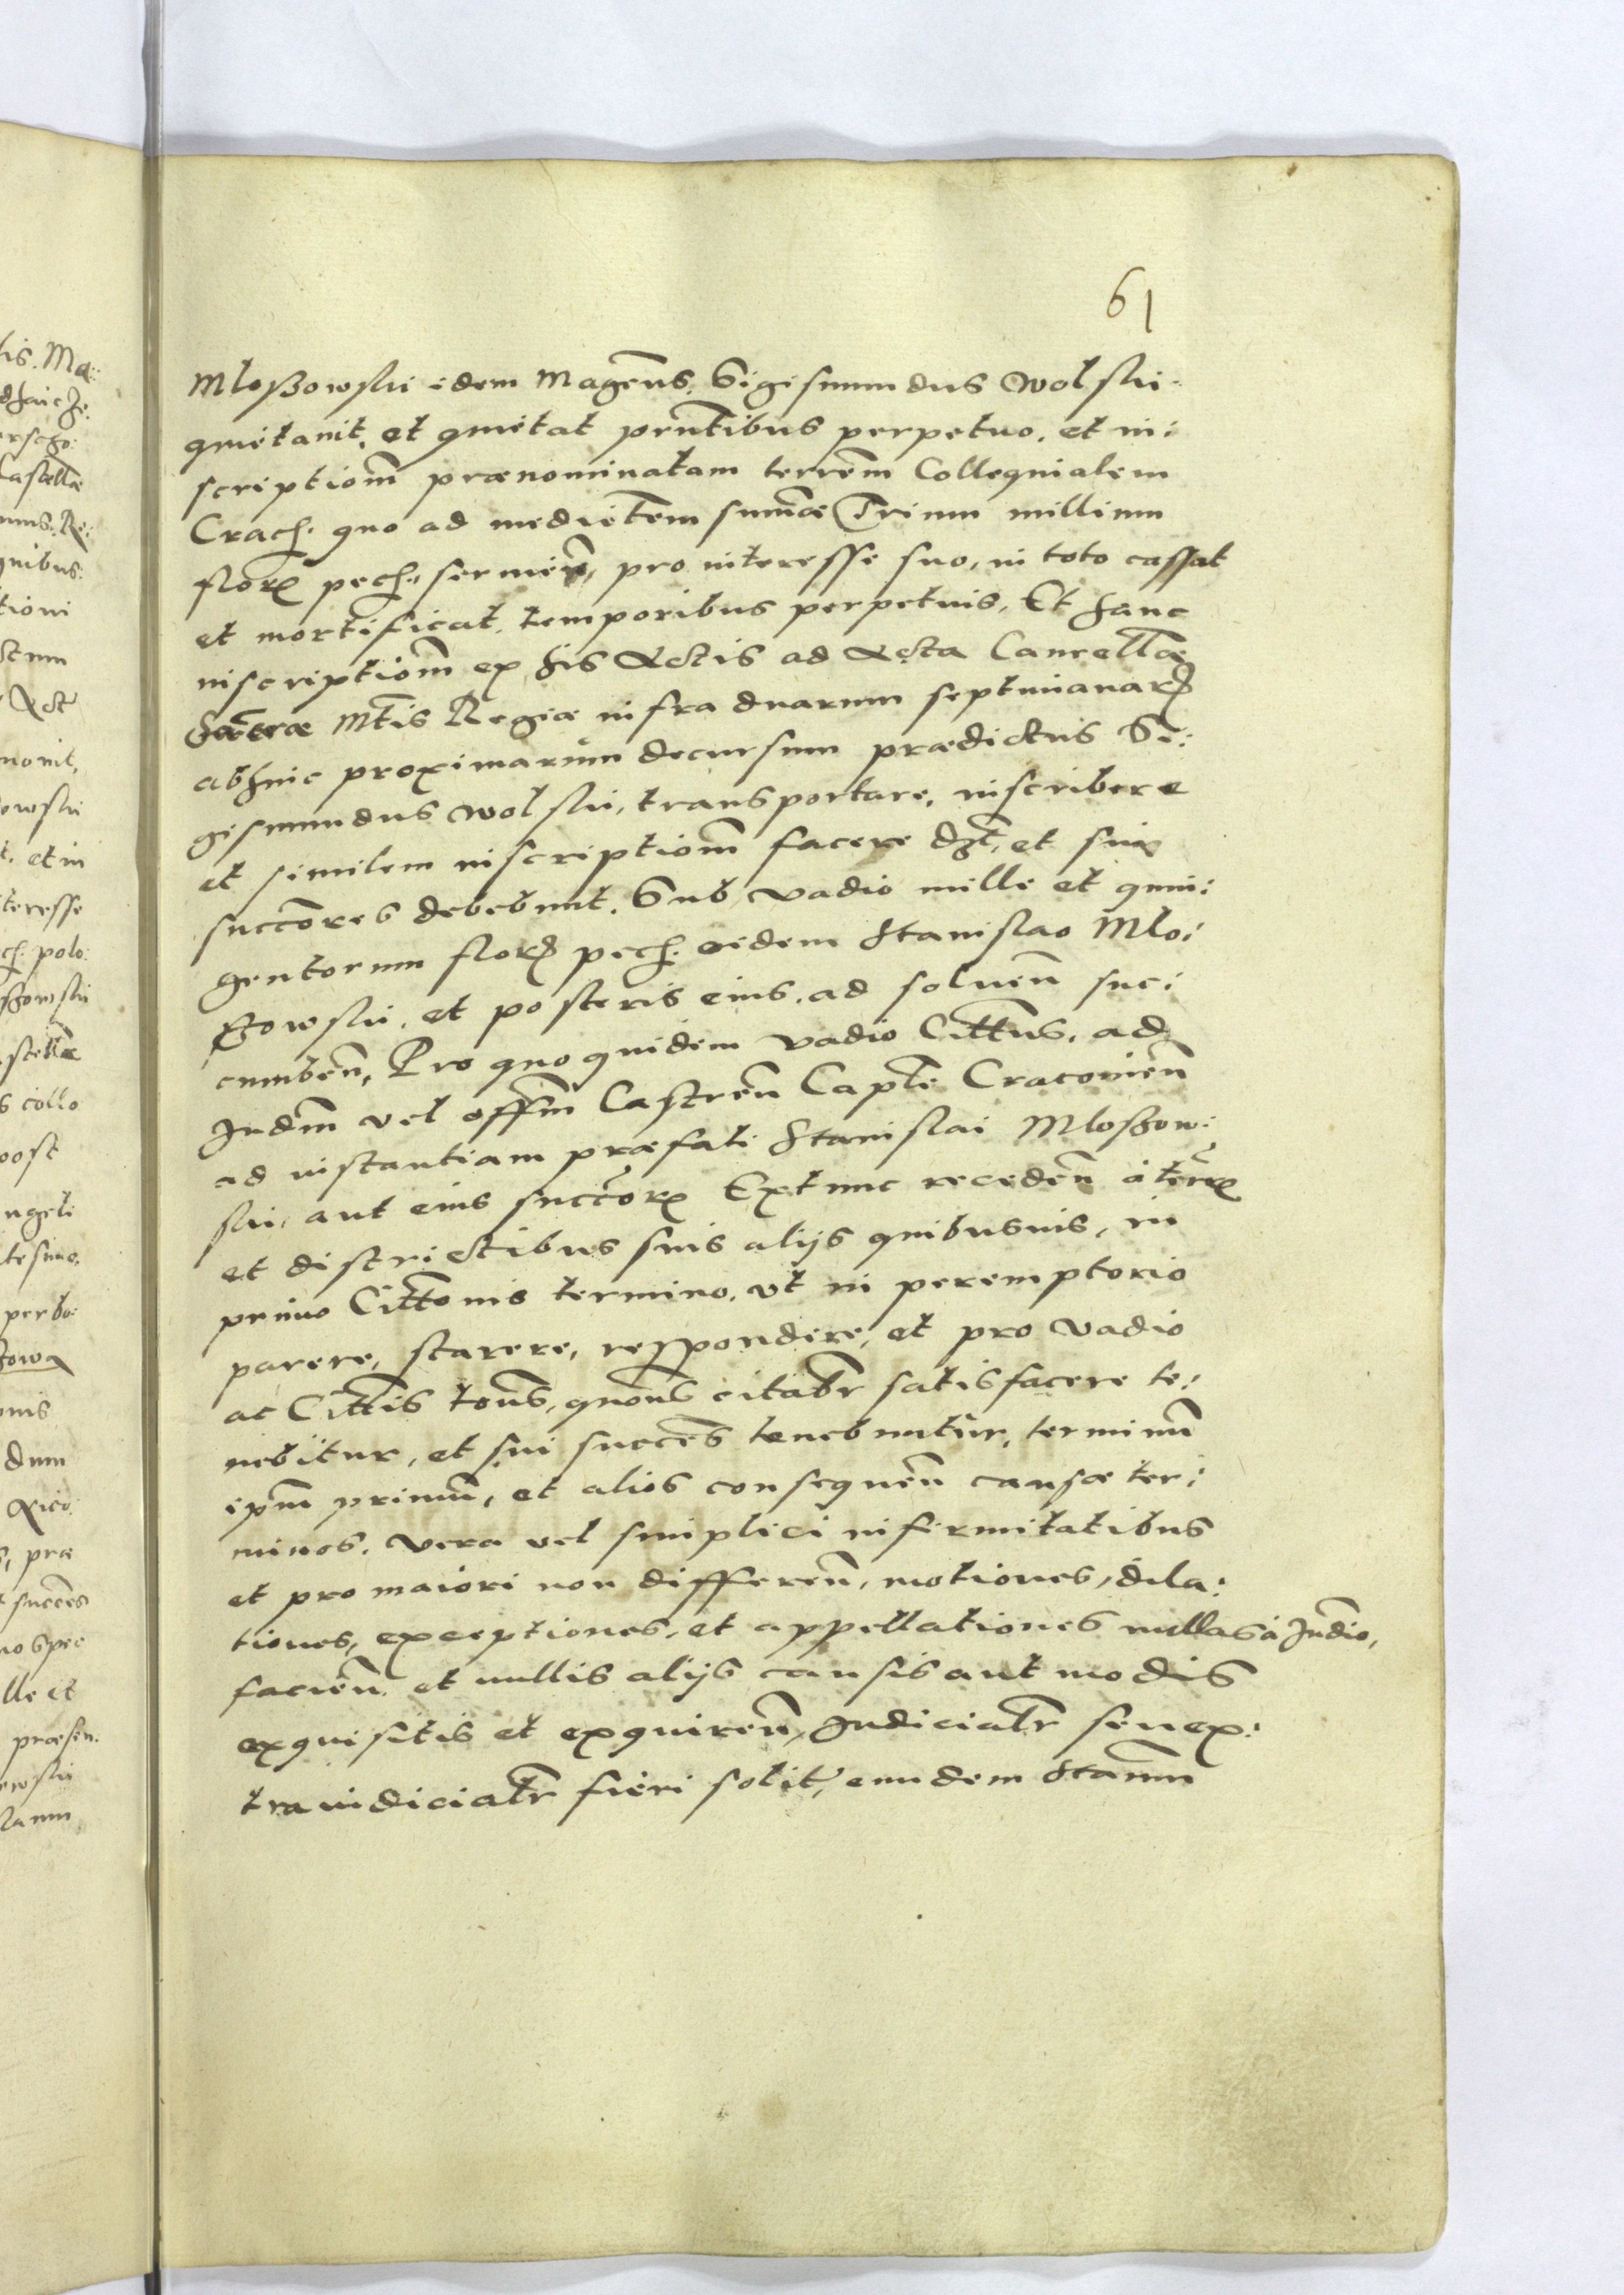 61
Mloßowski idem Magcus. Sigismundus Wolski
quietauit, et quietat pntibus perpetuo, et in:
scriptiom prænominatam terrem Colloquialem
Crach. quo ad medietem sumæ Trium millium
flor pech. pro interesse suo, in toto cassat
et mortificat, temporibus perpetuis, Et hanc
inscriptiom ex his Actis ad Acta Cancellæ
Sacræ Mtis Regiæ infra duarum septimanar
abhinc proximarum decursum prædictus Si:
gismundus Wolski, transportare, inscribere
et similem inscriptiom facere dzt, et sui
succores debebunt. Sub vadio mille et quin:
gentorum flor pech. eidem Stanislao Mlo:
ßowski, et posteris eius, ad soluen suc:
cumben, Pro quo quidem vadio Cittus, ad
Judm vel offm Castren Capte Cracouien
ad instantiam præfati Stanislai Mloßow:
ski, aut eius succor Extunc receden à terr
et districtibus suis alijs quibusuis, in
primo Cittonis termino, vt in peremptorio
parere, starere, respondere, et pro vadio
ac Cittis tous, quous citabr satisfacere te:
nebitur, et sui succes tenebuntur, terminu
ipm primu, et alios consequen causæ ter:
minos, vera vel simplici infirmitatibus
et pro maiori non differen, motiones, dila:
tiones, exceptiones, et appellationes nullas à Judio,
facien et nullis alijs causis aut modis
exquisitis et exquiren, Judicialr seu ex:
traiudicialr fieri solit, eundem Stanum